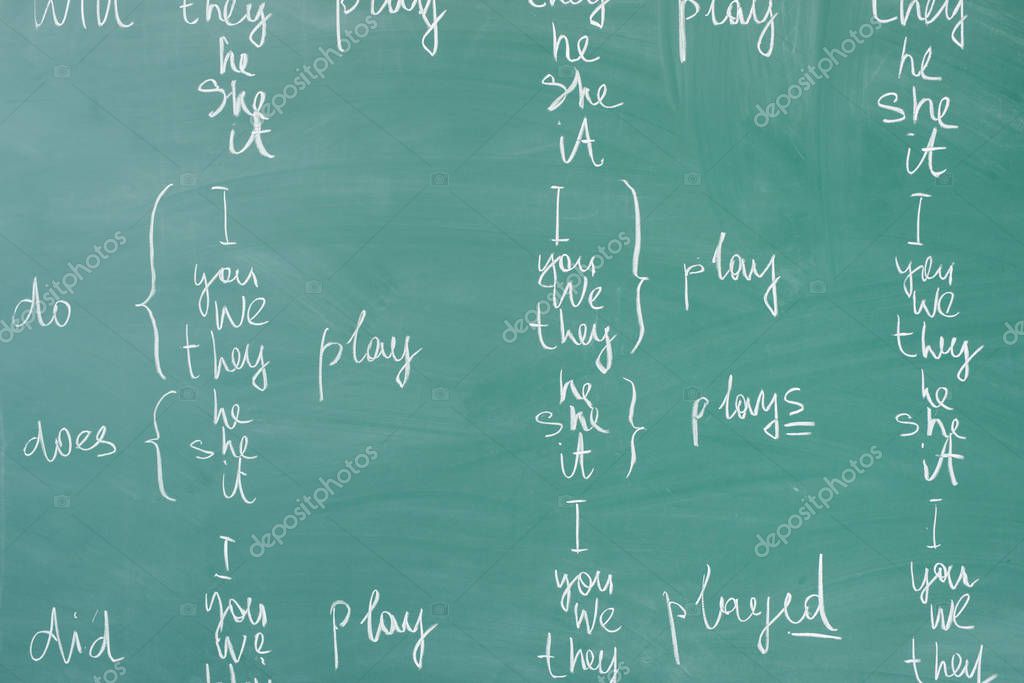 will they play they play they
he he he
she she she
it it it
I I I
you you play you
do we we we
they play they they
he he plays he
does she she she
it it it
I I I
you you you
did we play we played we
they they they
depositphotos